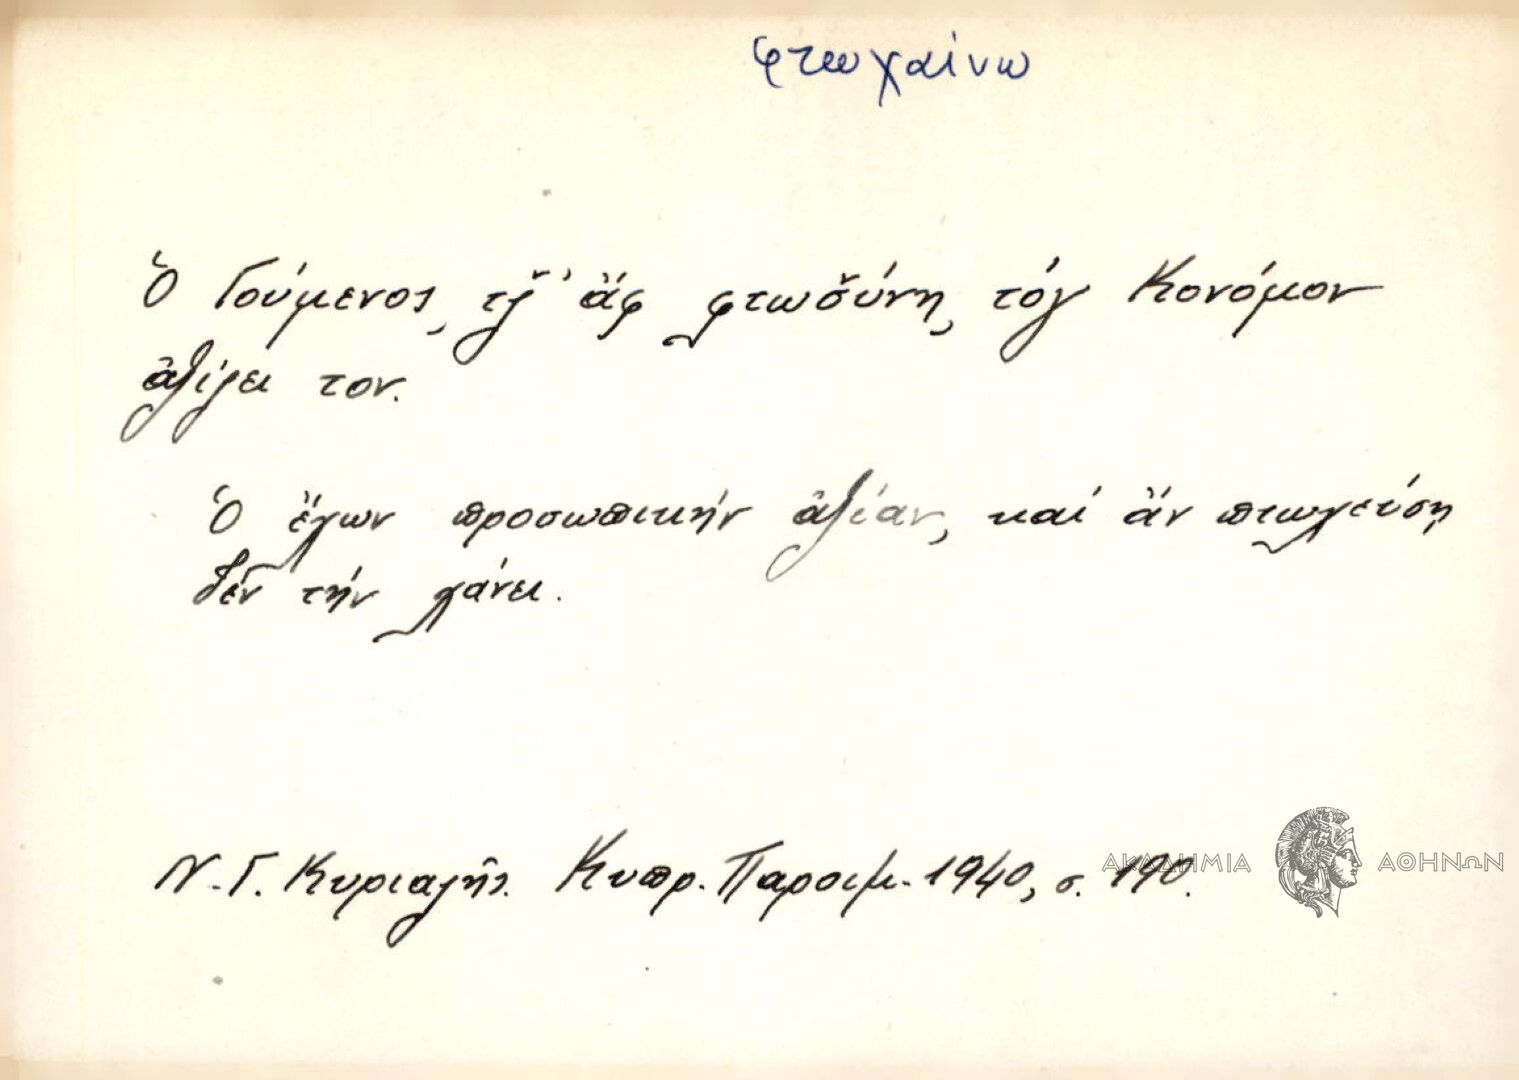 φτωχαίνω
Ὁ Γούμενος, τζ̌' ἄφ φτωσ̌ύνῃ, τόγ Κονόμον
ἀξίζει τον.
Ὁ ἔχων προσωπικήν ἀξίαν, καί ἄν πτωχεύσῃ
δέν τήν χάνει.
Ν. Γ. Κυριαζῆς. Κυπρ. Παροιμ. 1940, σ. 190.
ΑΚΑΔΗΜΙΑ ΑΘΗΝΩΝ